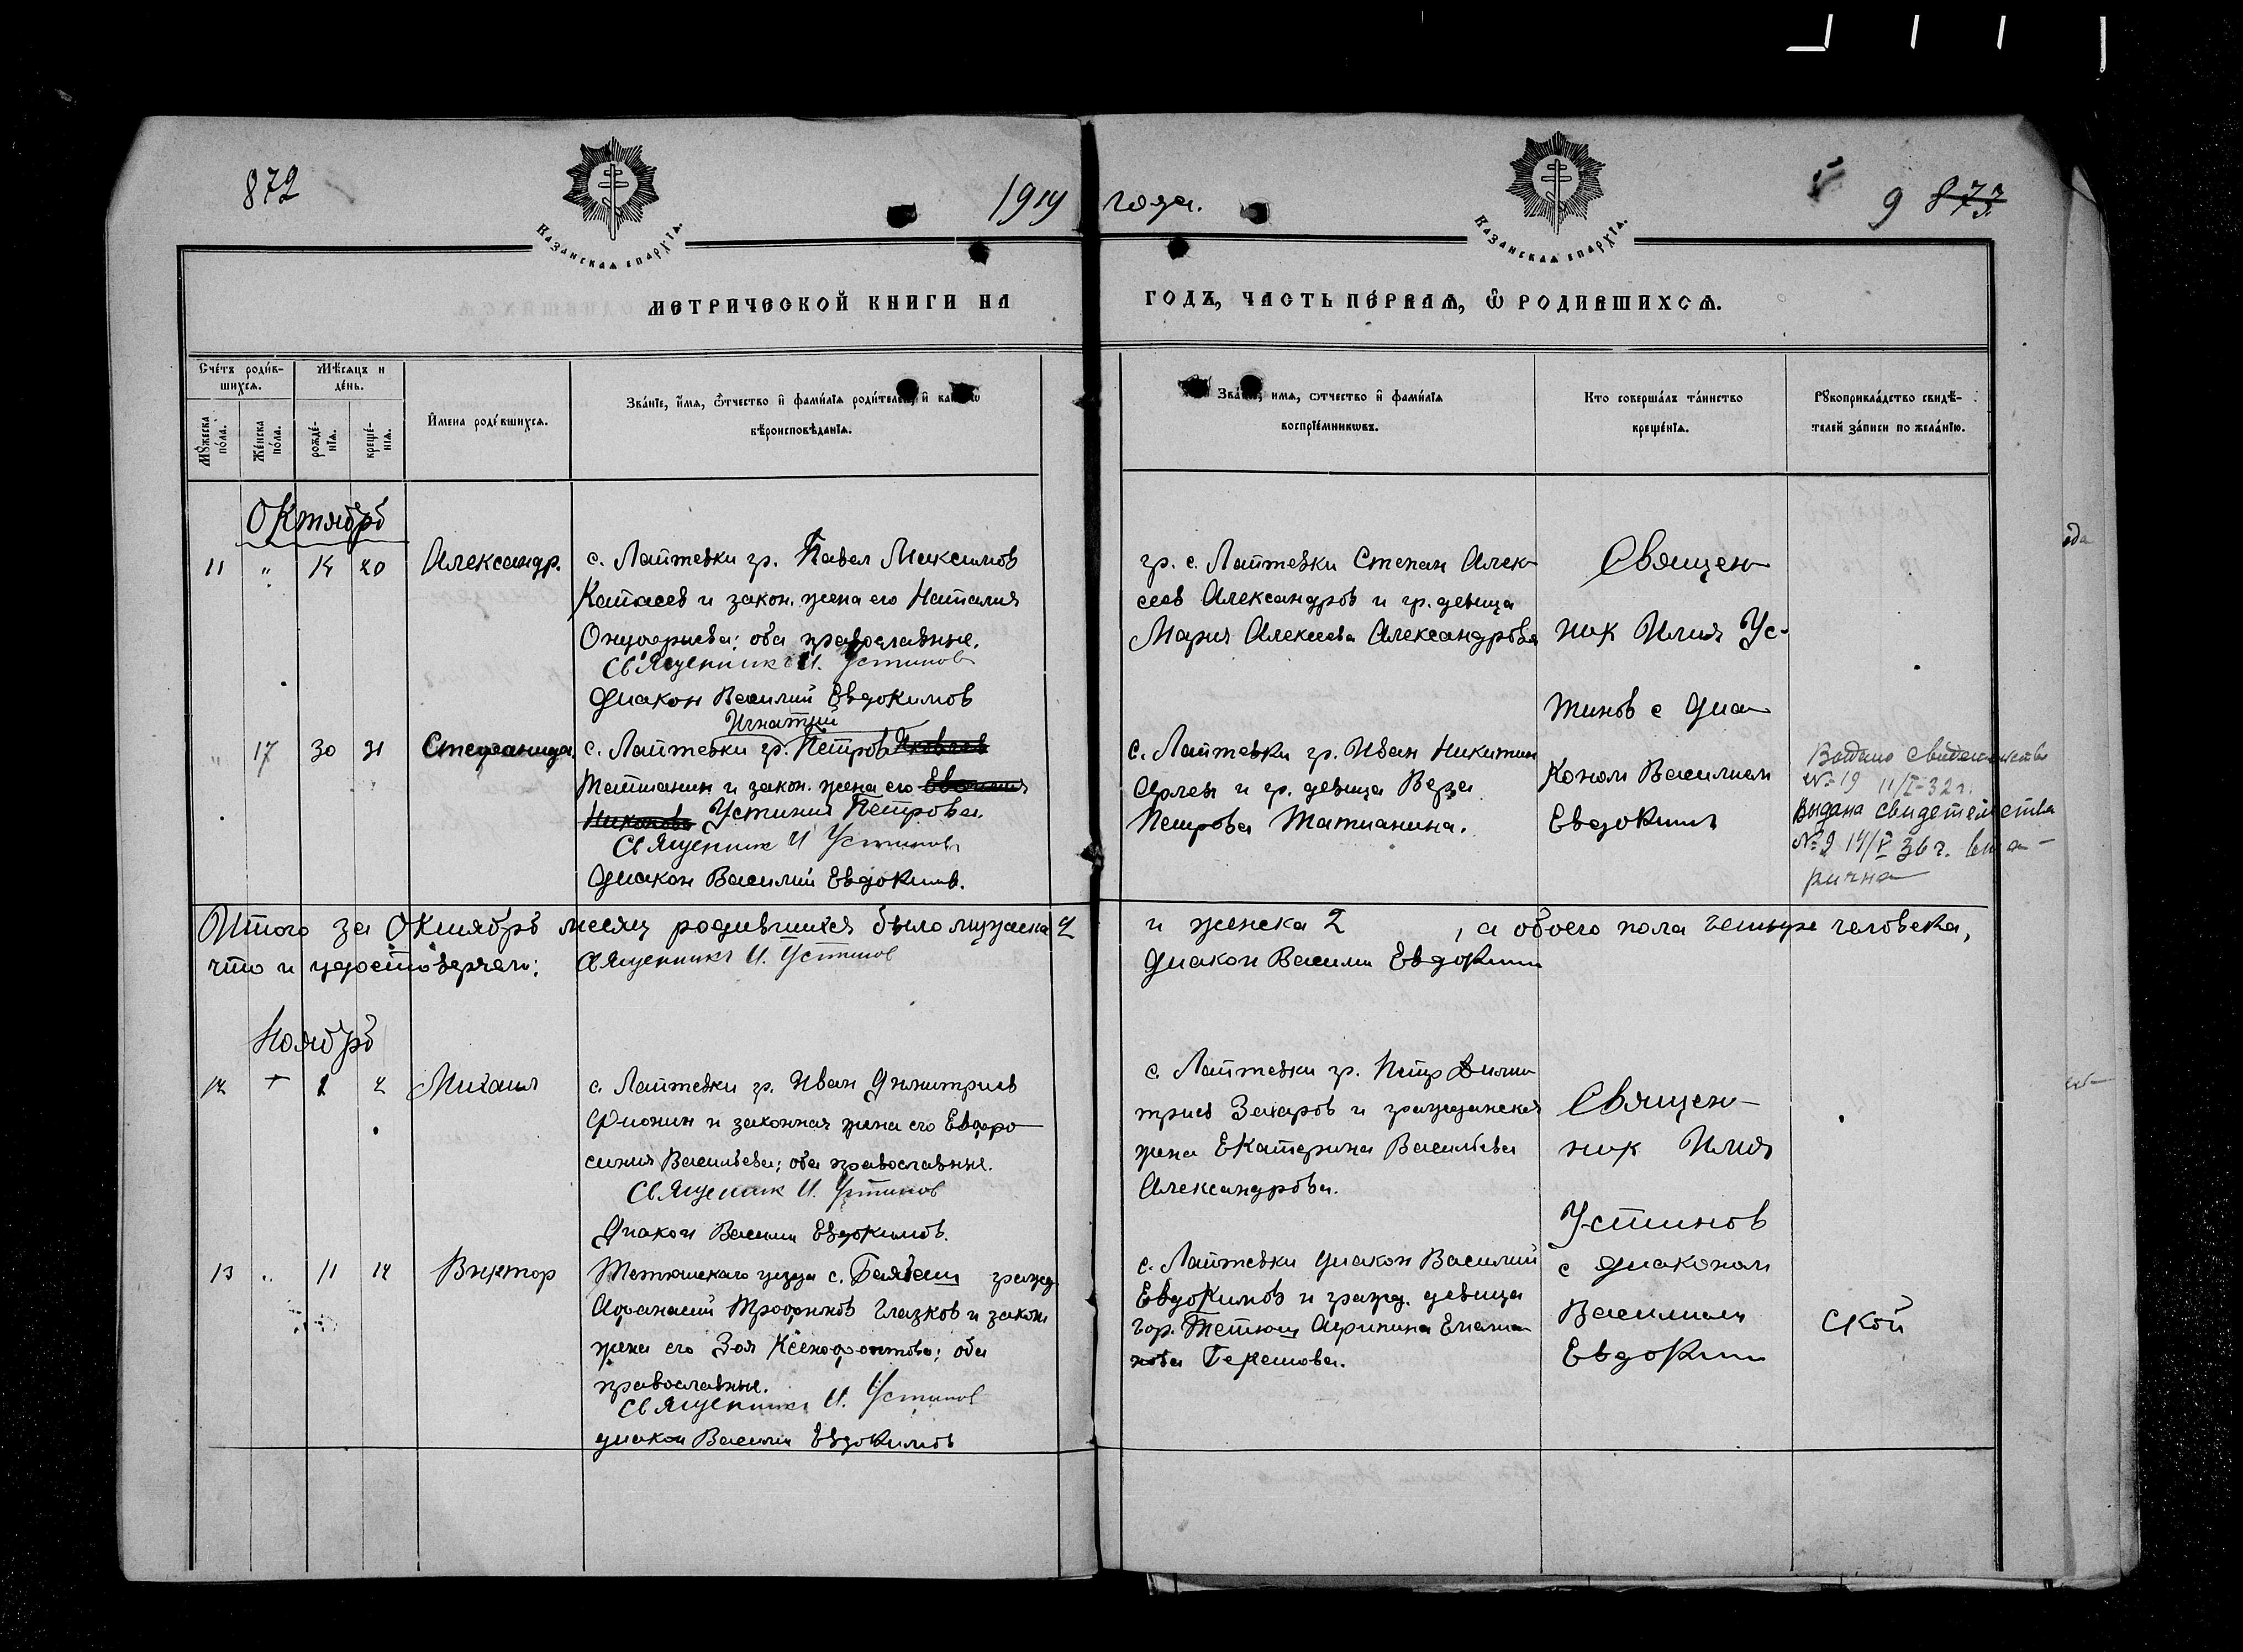 872
1919 года.
9 873
Казанская епархїа.
Казанская епархїа.
МЕТРИЧЕСКОЙ КНИГИ НА ГОДЪ, ЧАСТЬ ПЕ́РВАѦ, Ѡ҆ РОДИВШИХСѦ.
Сче́тъ роди́в-
шихсѧ.
Мѣ́сѧцъ и
де́нь.
Мꙋ́жеска
по́ла.
Же́нска
по́ла.
рожде́-
нїѧ.
креще́-
нїѧ.
И҆мена роди́вшихсѧ.
Зва́нїе, и҆́мѧ, ѻ҆́тчество и҆ фами́лїѧ роди́телей, и҆
вѣроисповѣ́данїѧ.
Зва́нїе, имѧ, ѻтчество и҆ фами́лїѧ
воспрїе́мникѡвъ.
Кто соверша́лъ та́инство
креще́нїѧ.
Рꙋкоприкла́дство свидѣ́-
телей за́писи по жела́нїю.
Октябрь
11 " 14 20 Александр.
с. Лаптевки гр. Павел Максимов
Катасев и закон. жена его Наталия
Онуфриева: оба православные.
Священникъ И. Устинов
Диакон Василий Евдокимов
гр. с. Лаптевки Степан Алек-
сеев Александров и гр. девица
Мария Алексеева Александрова
Священ-
ник Илия Ус-
тинов с диа-
коном Василием
Евдокимов
" 17 30 31 Стефанида
Игнатий
с. Лаптевки гр. Петров Яковлев
Татианин и закон. жена его
Устиния Петрова.
Священник И Устинов
Диакон Василий Евдокимов.
с. Лаптевки гр. Иван Никитин
Орлен и гр. девица Вера
Петрова Татианина.
Выдано свидетельство
№ 19 11/I-32 г.
Выдана свидетельства
№ 9 14/V 36 г. вта-
рична
Итого за Октябрь месяц родившихся было мужеска 2 и женска 2, а обоего пола четыре человека,
что и удостоверяем: Священникъ И. Устинов
Диакон Василий Евдокимов
Ноябрь
12 + 1 2 Михаил
с. Лаптевки гр. Иван Димитриев
Фионин и законная жена его Евфро-
синия Васильева; оба православные.
Священник И. Устинов
Диакон Василий Евдокимов.
с. Лаптевки гр. Петр Дими-
триев Захаров и гражданская
жена Екатерина Васильева
Александрова.
Священ-
ник Илия
Устинов
с диаконом
Василием
Евдокимов
13 " 11 14 Виктор
Тетюшскаго уезда с. гражд.
Афанасий Трофимов Глазков и закон.
жена его Зоя Ксенофонтова; оба
православные.
Священникъ И. Устинов
диакон Василий Евдокимов
с. Лаптевки диакон Василий
Евдокимов и гражд. девица
гор. Тетюш Агрипина Емелиа-
нова Гекешова.
ской